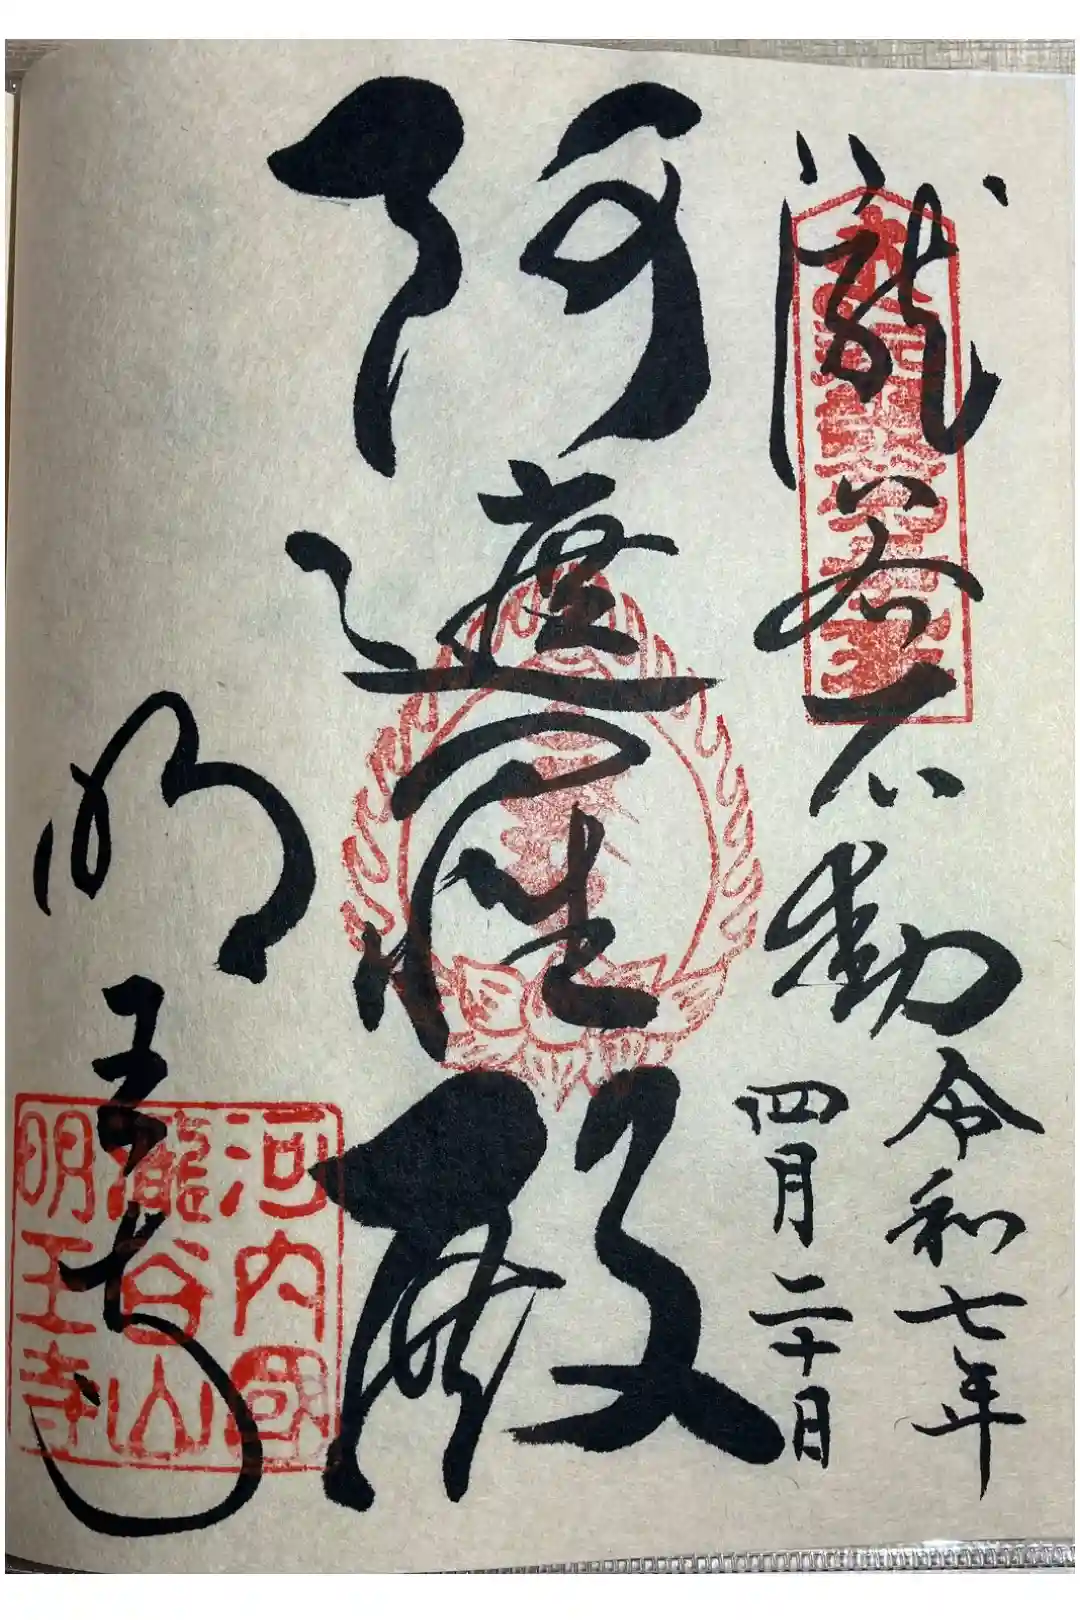 瀧谷不動
令和七年
四月二十日
阿遮羅殿
明王寺
河内國
瀧谷山
明王寺